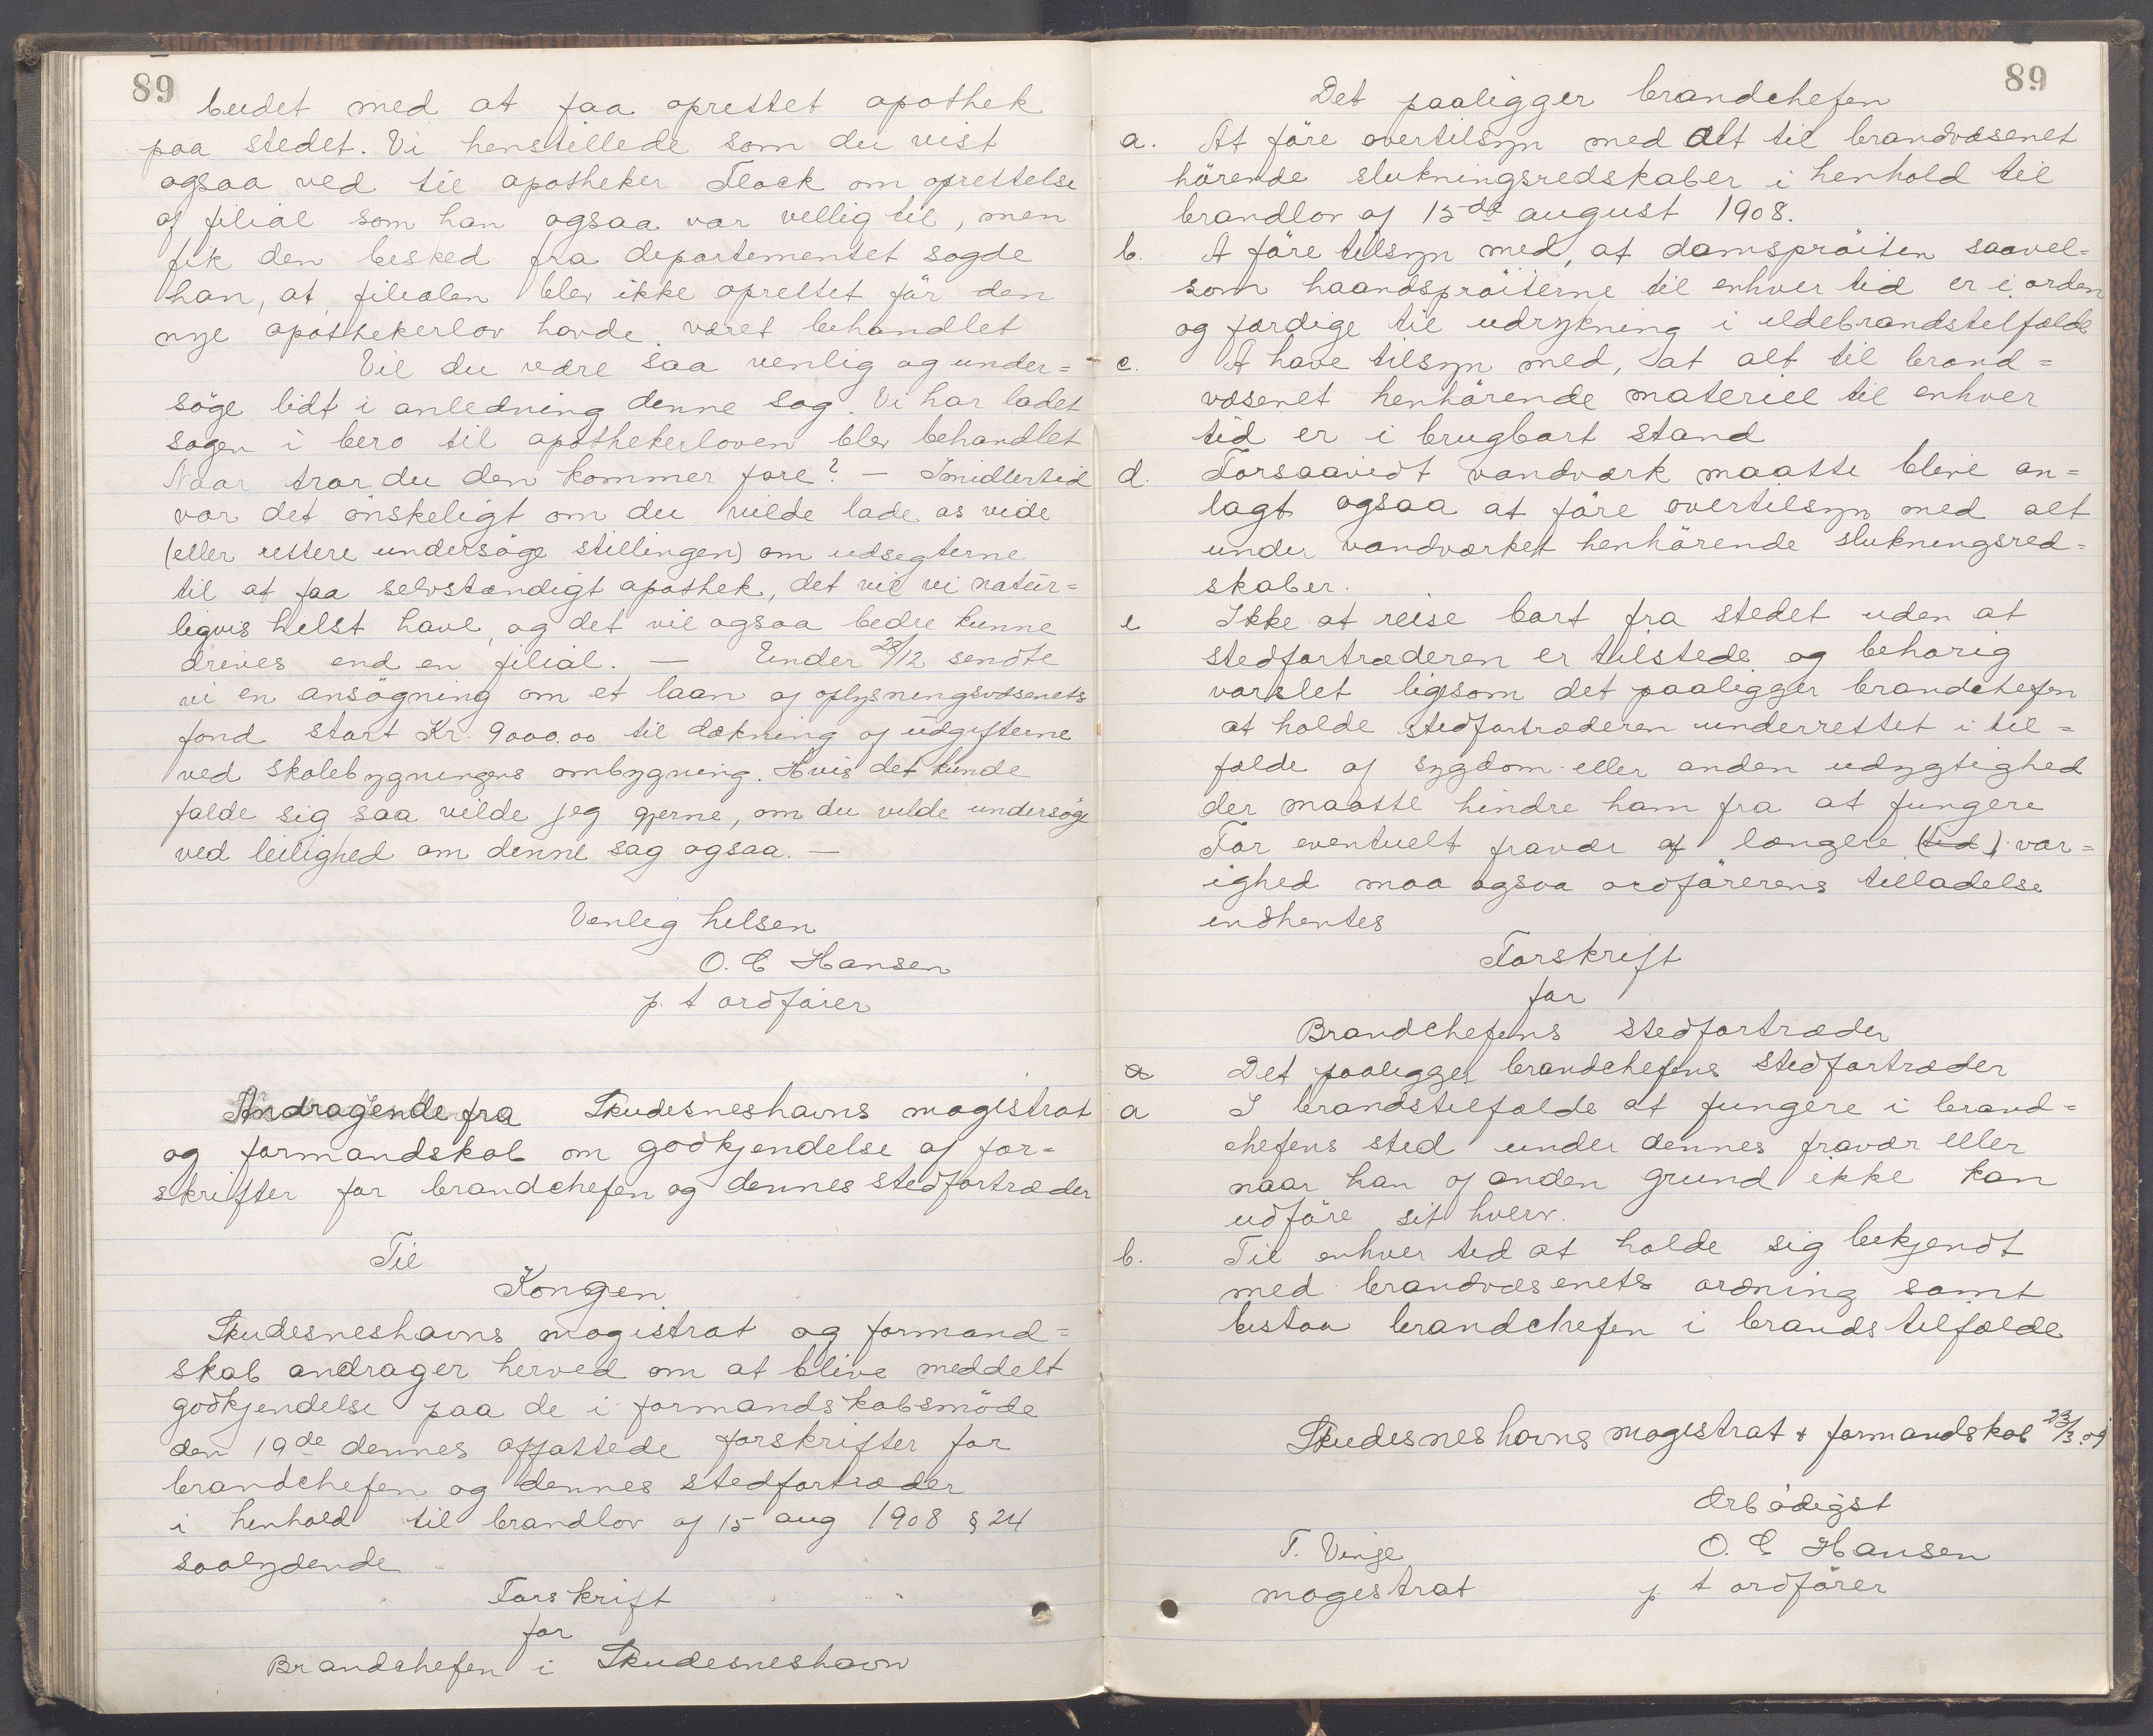 89
budet med at faa oprettet apothek
paa stedet. Vi henstillede som du vist
ogsaa ved til apotheker Flock om oprettelse
af filial som han ogsaa var vellig til, men
fik den besked fra departementet sagde
han, at filialen blev ikke oprettet før den
nye apothekerlov havde været behandlet
Vil du være saa venlig og under=
søge lidt i anledning denne sag. Vi har ladet
sagen i bero til apothekerloven blev behandlet
Naar tror du den kommer fore? — Imidlertid
var det ønskeligt om du vilde lade os vide
(eller rettere undersøge stillingen) om udsegterne
til at faa selvstændigt apothek, det vil vi natur=
ligvis helst have, og det vil ogsaa bedre kunne
drives end en filial. — Under 28/12 sendte
vi en ansøgning om et laan af oplysningsvæsenets
fond stort Kr. 9000.00 til dækning af udgifterne
ved skolebygningens ombygning. Hvis det kunde
falde sig saa vilde jeg gjerne, om du vilde undersøge
ved leilighed om denne sag ogsaa. —
Venlig hilsen
O. C Hansen
p. t ordfører
Andragende fra Skudesneshavns magistrat
og formandskab om godkjendelse af for=
skrifter for brandchefen og dennes stedfortræder
Til
Kongen
Skudesneshavns magistrat og formand=
skab andrager herved om at blive meddelt
godkjendelse paa de i formandskabsmøde
den 19de dennes affattede forskrifter for
brandchefen og dennes stedfortræder
i henhold til brandlov af 15 aug 1908 § 24
saalydende
Forskrift
for
Brandchefen i Skudesneshavn
89
Det paaligger brandchefen
a. At føre overtilsyn med alt til brandvæsenet
hørende slukningsredskaber i henhold til
brandlov af 15de august 1908.
b. At føre tilsyn med, at dampsprøiten saavel=
som haandsprøiterne til enhver tid er i orden
og færdige til udrykning i ildebrandstelfælde
c. At have tilsyn med, at alt til brand=
væsenet henhørende materiel til enhver
tid er i brugbart stand
d. Forsaavidt vandværk maatte blive an=
lagt ogsaa at føre overtilsyn med alt
under vandværket henhørende slukningsred=
skaber.
e Ikke at reise bort fra stedet uden at
stedfortræderen er tilstede og behørig
varslet ligesom det paaligger brandchefen
at holde stedfortræderen underrettet i til=
fælde af sygdom eller anden udygtighed
der maatte hindre ham fra at fungere
For eventuelt fravær af længere (tid) var=
ighed maa ogsaa ordførerens tilladelse
indhentes
Forskrift
for
Brandchefens stedfortræder
a Det paaligger brandchefens stedfortræder
a I brandstilfælde at fungere i brand=
chefens sted under dennes fravær eller
naar han af anden grund ikke kan
udføre sit hverv.
b. Til enhver tid at holde sig bekjendt
med brandvæsenets ordning samt
bistaa brandchefen i brandstilfælde
Skudesneshavns magistrat & formandskab 23/3.09
Ærbødigst
T. Vinje O. C Hansen
magistrat p t ordfører